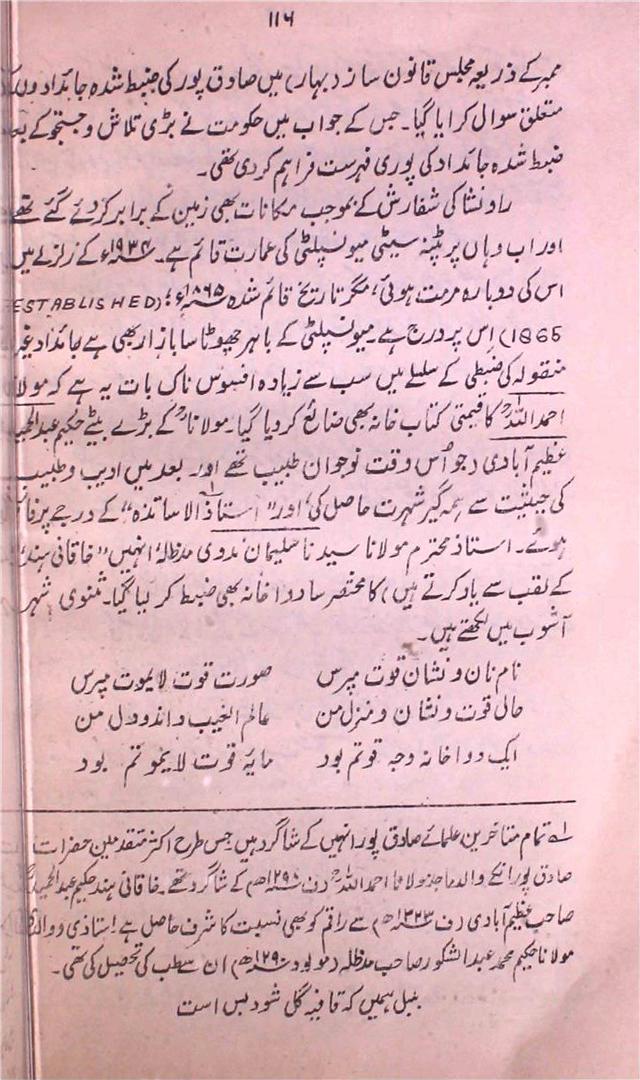 ۱۱۶
ممبر کے ذریعہ مجلس قانون ساز (بہار) میں صادق پور کی ضبط شدہ جائدادوں
متعلق سوال کرایا گیا۔ جس کے جواب میں حکومت نے بڑی تلاش و جستجو کے بعد
ضبط شدہ جائداد کی پوری فہرست فراہم کر دی تھی۔
راونشا کی شفارش کے بموجب مکانات بھی زمین کے برابر کر دئے گئے تھے
اور اب وہاں پر پٹنہ سیٹی میونسپلٹی کی عمارت قائم ہے۔ ۱۹۳۴ء کے زلزلے میں
اس کی دوبارہ مرمت ہوئی، مگر تاریخ قائم شدہ ۱۸۶۵ء؛ (ESTABLISHED
1865) اس پر درج ہے۔ میونسپلٹی کے باہر چھوٹا سا بازار بھی ہے جائداد غیر
منقولہ کی ضبطی کے سلسلے میں سب سے زیادہ افسوس ناک بات یہ ہے کہ مولانا
احمد اللہؒ کا قیمتی کتاب خانہ بھی ضائع کر دیا گیا۔ مولاناؒ کے بڑے بیٹے حکیم عبدالحمید
عظیم آبادی (جو اُس وقت نوجوان طبیب تھے اور بعد میں ادیب و طبیب
کی حیثیت سے ہمہ گیر شہرت حاصل کی، اور "استاذ الاساتذہ" کے درجے پر فائز
ہوئے۔ استاذ محترم مولانا سیدنا سلیمان ندوی مدظلہٗ انہیں "خاقانی ہند"
کے لقب سے یاد کرتے ہیں) کا مختصر سا دواخانہ بھی ضبط کر لیا گیا۔ مثنوی شہر
آشوب میں لکھتے ہیں۔
نام نان و نشان قوت مپرس صورت قوت لایموت مپرس
حال قوت و نشان و منزل من عالم الغیب داند و دل من
ایک دواخانہ وجہ قوتم بود مایۂ قوت لایموتم بود
لہ تمام متاخرین علمائے صادق پور انہیں کے شاگرد ہیں جس طرح اکثر متقدمین حضرات
صادق پور انکے والد ماجد مولانا احمد اللہؒ (ف ۱۲۹۸ھ) کے شاگرد تھے۔ خاقانی ہند حکیم عبدالحمید
صاحب عظیم آبادی (ف ۱۳۲۳ھ) سے راقم کو بھی نسبت کا شرف حاصل ہے! استاذی و والدی
مولانا حکیم محمد عبدالشکور صاحب مدظلہ (مولود ۱۲۹۰ھ) ان سے طب کی تحصیل کی تھی۔
بلبل ہمیں کہ قافیہ گل شود بس است